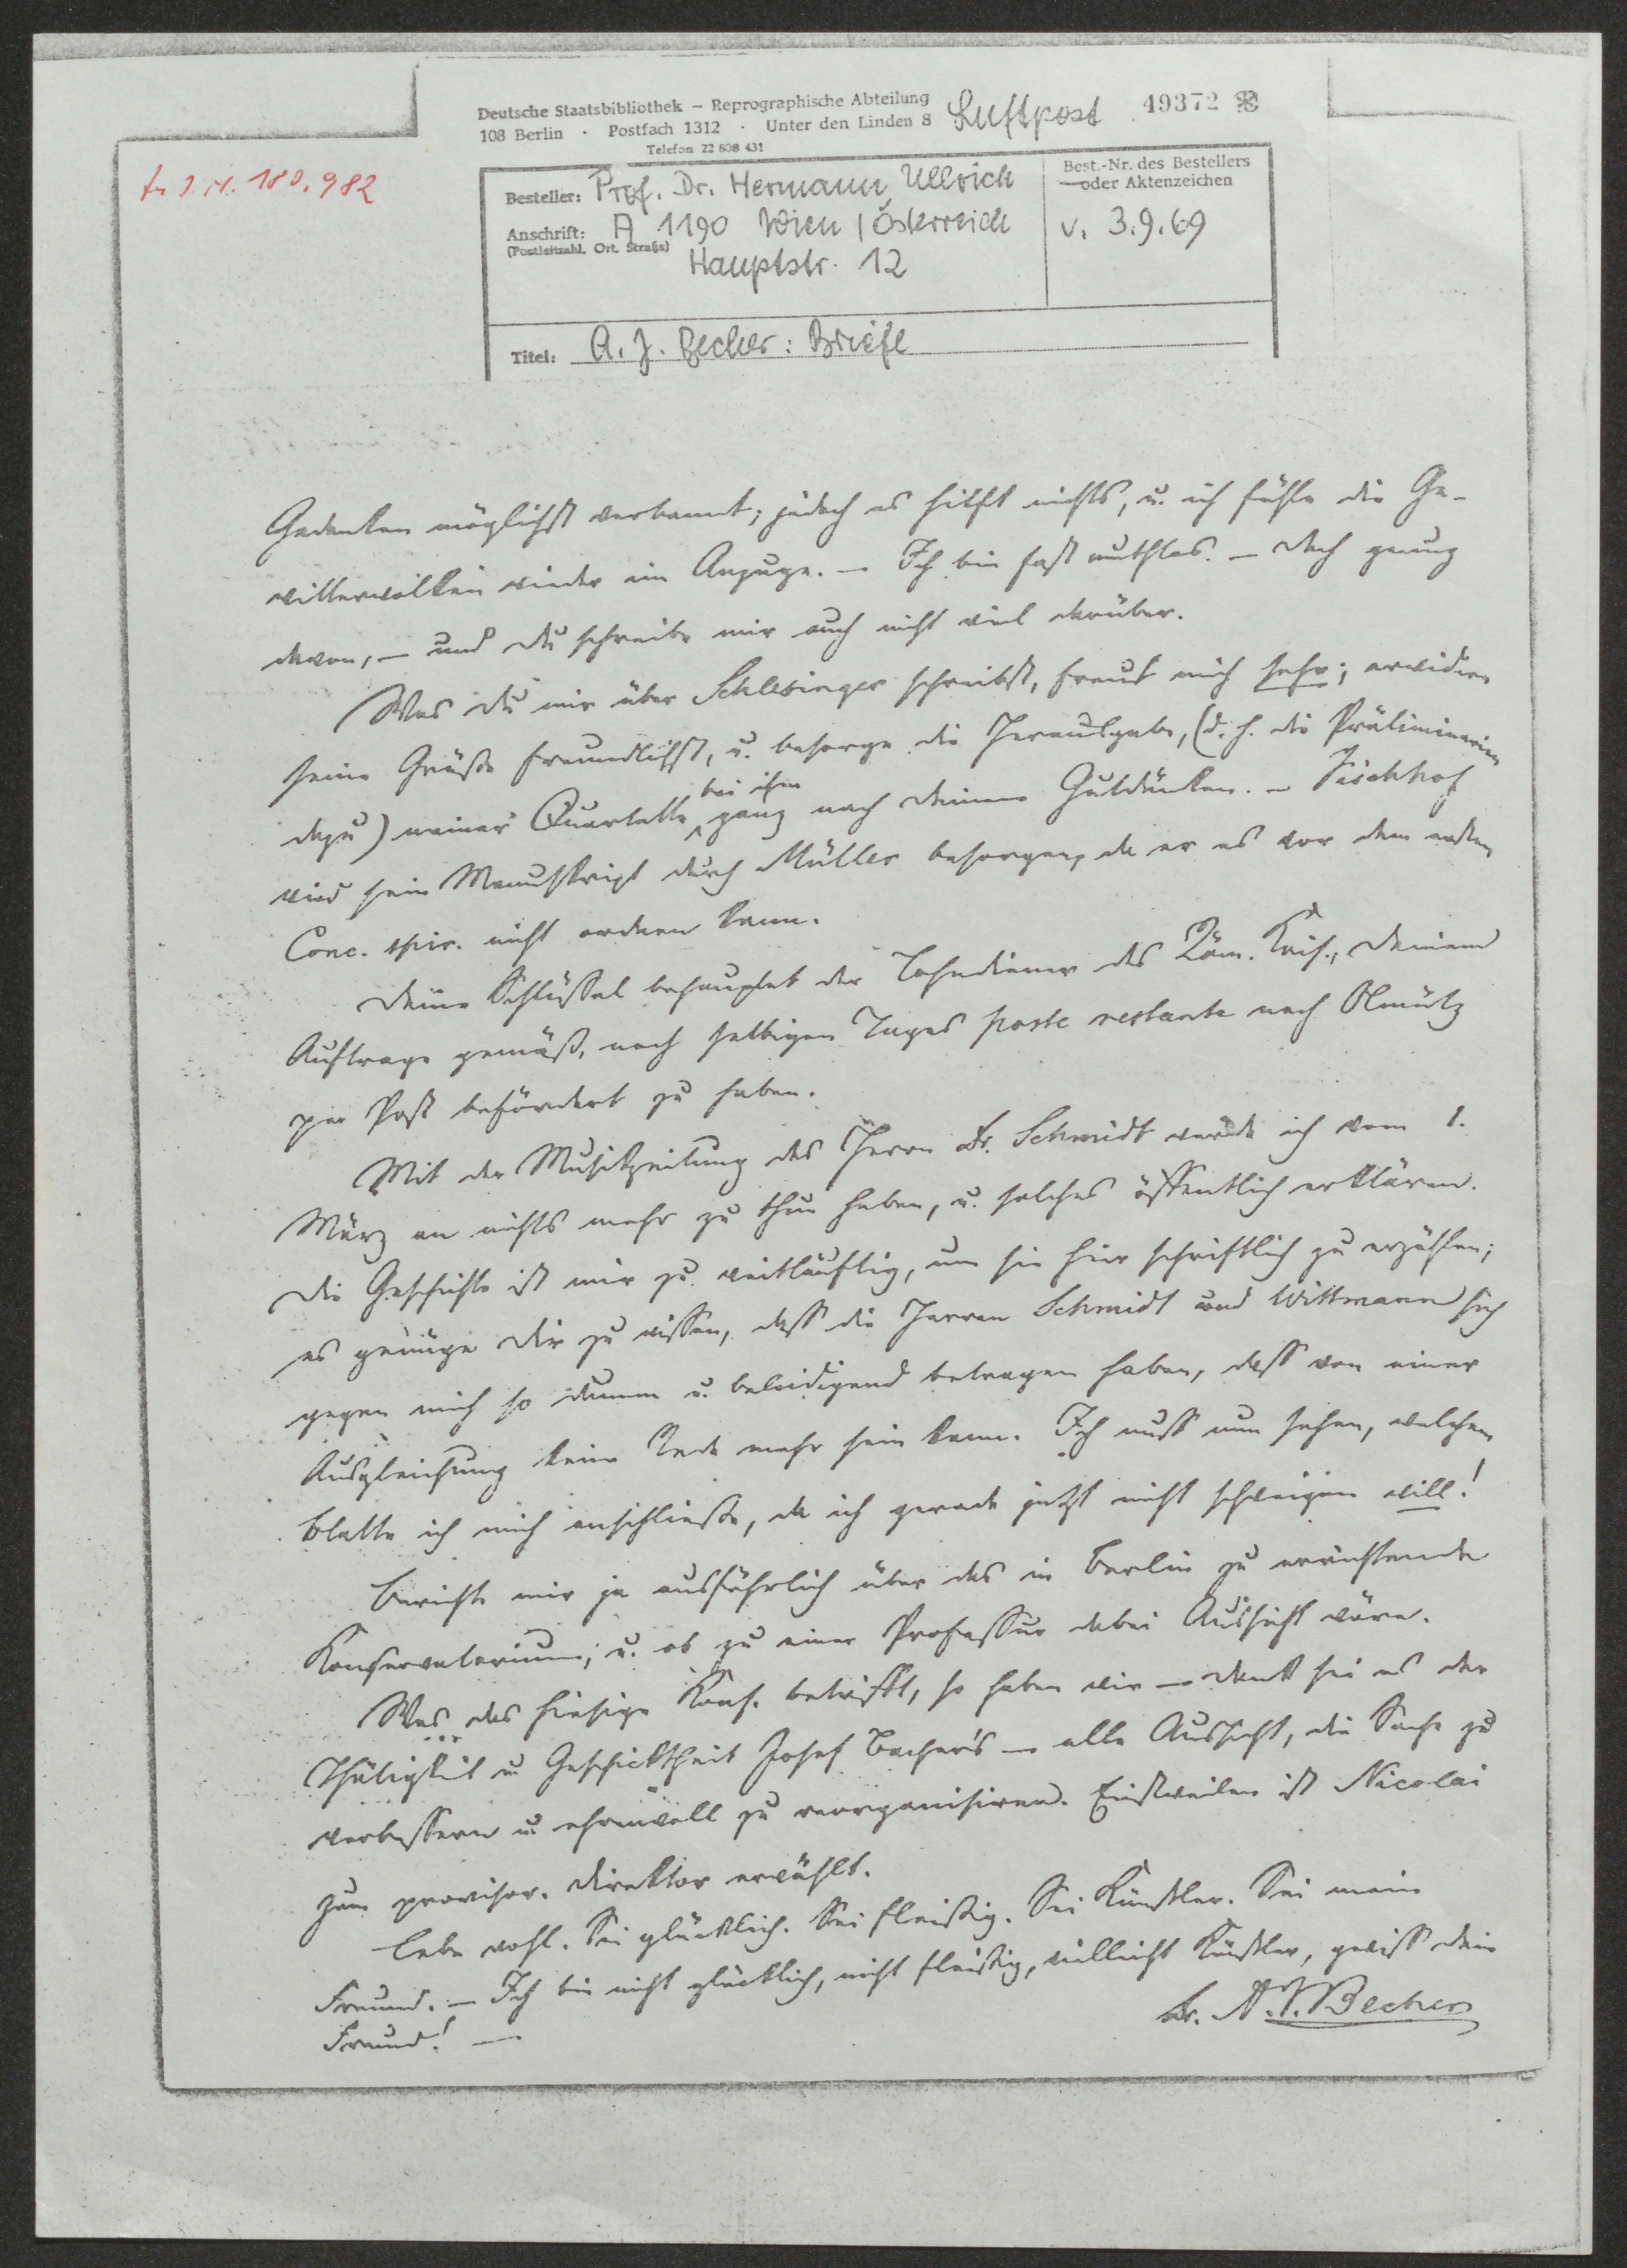 Deutsche Staatsbibliothek – Reprographische Abteilung
108 Berlin · Postfach 1312 · Unter den Linden 8
Telefon 22 808 431
Luftpost
49372
I. N. 180.982
Besteller: Prof. Dr. Hermann Ullrich
Anschrift: A 1190 Wien / Österreich
(Postleitzahl, Ort, Straße)
Hauptstr. 12
Best.-Nr. des Bestellers
oder Aktenzeichen
v. 3.9.69
Titel: A. J. Becher: Briefe
Gedanken möglichst verbannt; jedoch es hilft nichts, u. ich fühle die Ge-
witterwolken wieder im Anzuge. – Ich bin fast muthlos. – Doch genug
davon, – und Du schreibe mir auch nicht viel darüber.
Was Du mir über Schlesinger schreibst, freut mich sehr; erwidere
seine Grüße freundlichst, u. besorge die Herausgabe, (d. h. die Präliminarien
dazu) meiner Quartette bei ihm ganz nach Deinem Gutdünken. – Fischhof
wird sein Manuskript durch Müller besorgen, da er es vor dem ersten
Conc. spir. nicht ordnen kann.
Deine Schlüssel behauptet der Lohndiener des Röm. Kais., Deinem
Auftrage gemäß, noch selbigen Tages poste restante nach Olmütz
per Post befördert zu haben.
Mit der Musikzeitung des Herrn Dr. Schmidt werde ich vom 1.
März an nichts mehr zu thun haben, u. solches öffentlich erklären.
Die Geschichte ist mir zu weitläuftig, um sie hier schriftlich zu erzählen;
es genüge Dir zu wissen, dass die Herren Schmidt und Wittmann sich
gegen mich so dumm u. beleidigend betragen haben, dass von einer
Ausgleichung keine Rede mehr sein kann. Ich muss nun sehen, welchem
Blatte ich mich anschließe, da ich gerade jetzt nicht schweigen will!
Berichte mir ja ausführlich über das in Berlin zu errichtende
Konservatorium; u. ob zu einer Professur dabei Aussicht wäre.
Was das hiesige Kons. betrifft, so haben wir – Dank sei es der
Thätigkeit u. Geschicktheit Josef Bacher's – alle Aussicht, die Sache zu
verbessern u. ehrenvoll zu reorganisiren. Einstweilen ist Nicolai
zum provisor. Direktor erwählt.
Lebe wohl. Sei glücklich. Sei fleißig. Sei Künstler. Sei mein
Freund. – Ich bin nicht glücklich, nicht fleißig, vielleicht Künstler, gewiss Dein
Freund! –
Dr. A. J. Becher